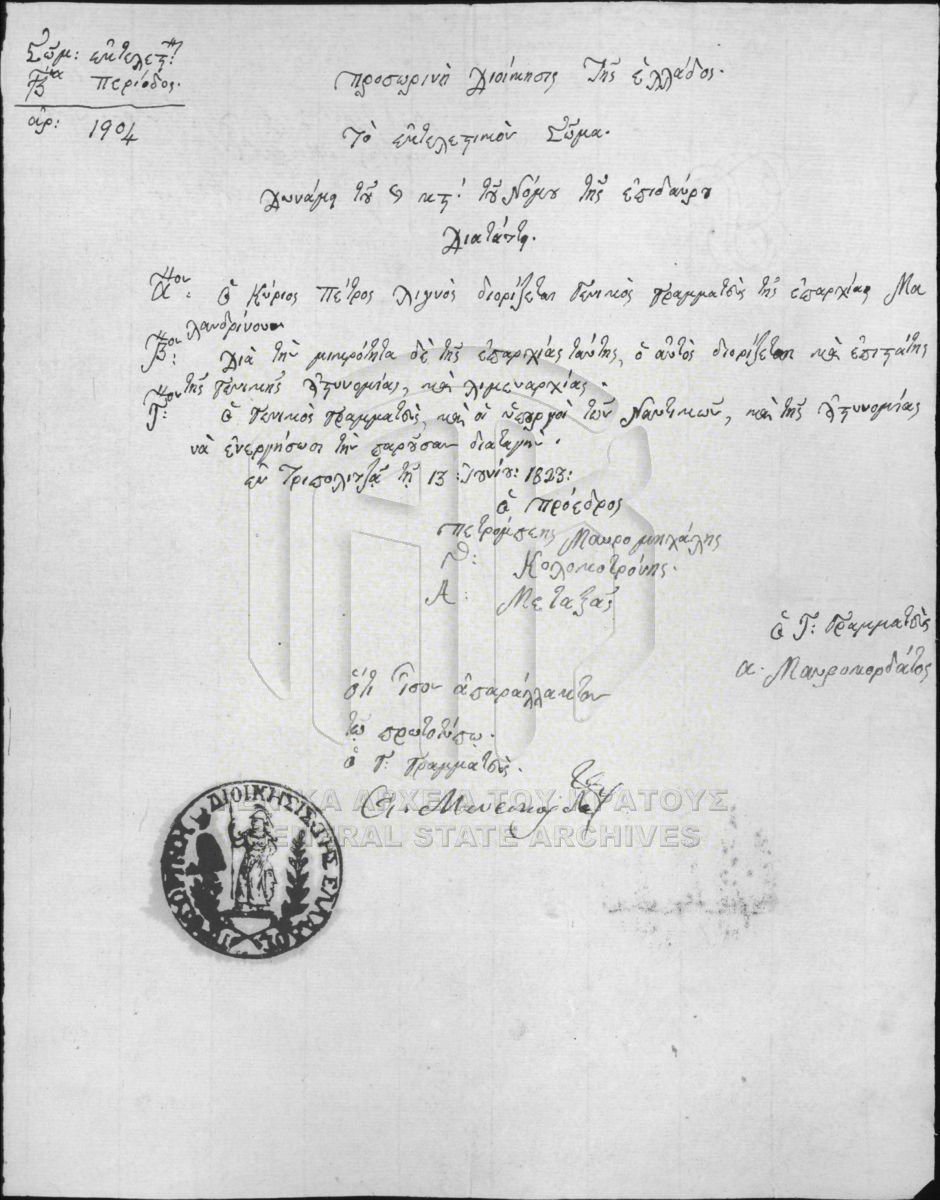 Σῶμ: ἐκτελεστ:
Β^α περίοδος.
ἀρ: 1904
Προσωρινὴ Διοίκησις τῆς Ἑλλάδος.
Τὸ ἐκτελεστικὸν Σῶμα.
Δυνάμει τοῦ κτ. τοῦ Νόμου τῆς Ἐπιδαύρου
Διατάττει.
Α^ον: Ὁ Κύριος Πέτρος Λιγνὸς διορίζεται Γενικὸς Γραμματεὺς τῆς ἐπαρχίας Μα
λανδρίνου
Β^ον: Διὰ τὴν μικρότητα δὲ τῆς ἐπαρχίας ταύτης, ὁ αὐτὸς διορίζεται καὶ ἐπιστάτης
τῆς Γενικῆς Ἀστυνομίας, καὶ λιμεναρχίας.
Γ^ον: Ὁ Γενικὸς Γραμματεὺς, καὶ οἱ ὑπουργοὶ τῶν Ναυτικῶν, καὶ τῆς Ἀστυνομίας
νὰ ἐνεργήσωσι τὴν παροῦσαν διαταγήν.
ἐν Τριπολιτζᾷ τῇ 13 Ἰουνίου: 1823:
Ὁ Πρόεδρος
Πετρόμπεης Μαυρομιχάλης
Θ: Κολοκοτρόνης.
Α: Μεταξᾶς
Ὁ Γ: Γραμματεὺς
Α. Μαυροκορδάτος
ὅτι ἴσον ἀπαράλλακτον
τῷ πρωτοτύπῳ.
Ὁ Γ: Γραμματεὺς.
ΠΡΟΣΩΡΙΝΗ ΔΙΟΙΚΗΣΙΣ ΤΗΣ ΕΛΛΑΔΟΣ
ΓΕΝΙΚΑ ΑΡΧΕΙΑ ΤΟΥ ΚΡΑΤΟΥΣ
GENERAL STATE ARCHIVES